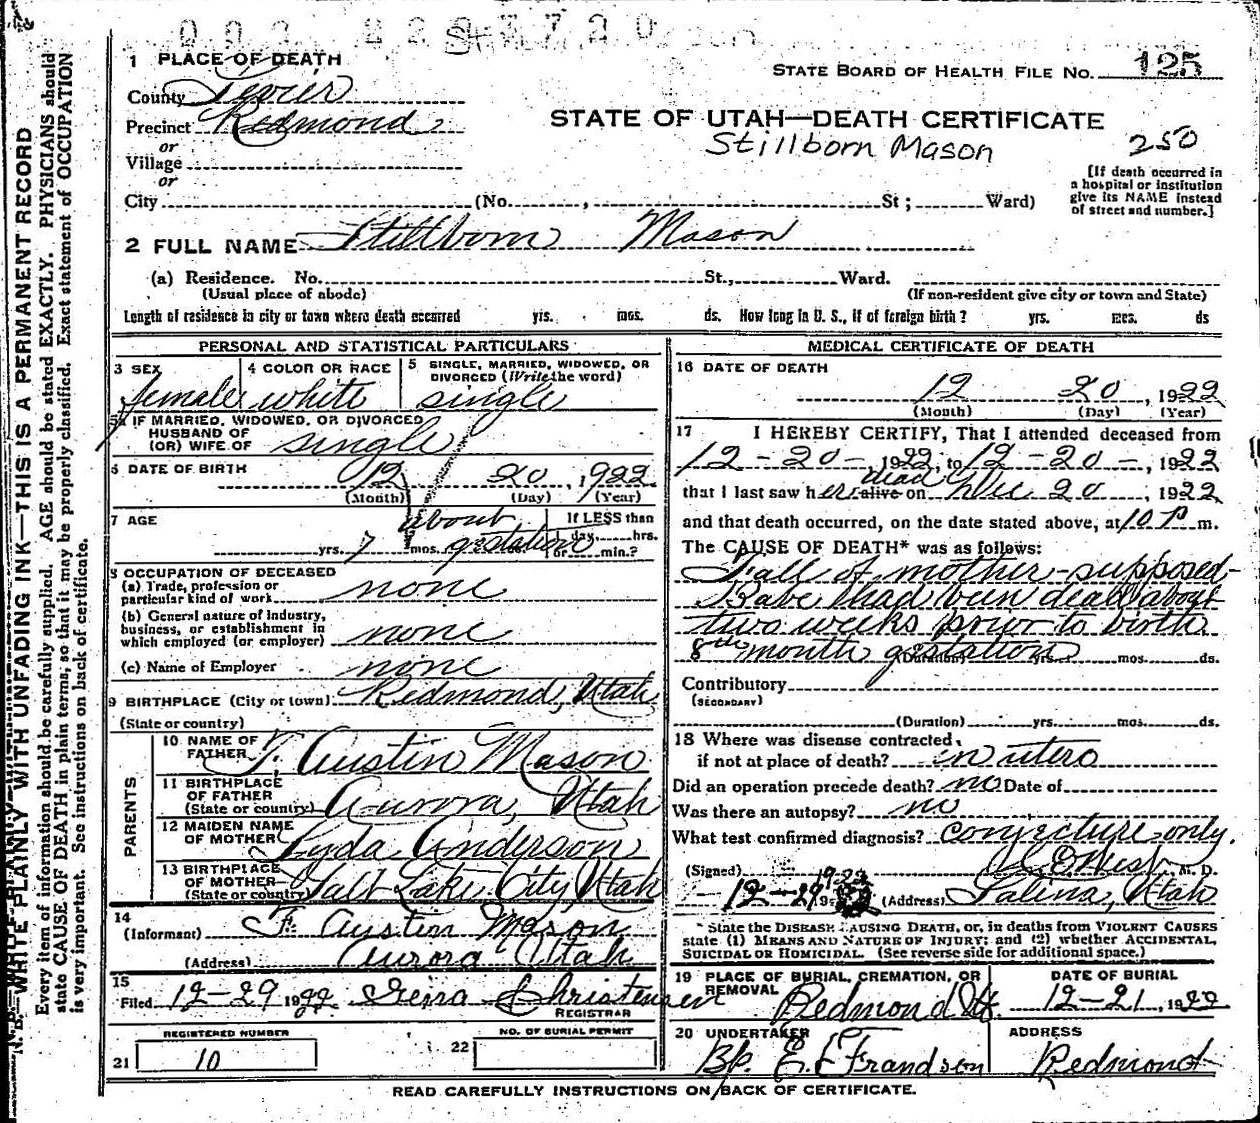 1 PLACE OF DEATH
STATE BOARD OF HEALTH FILE NO. 125
County Sevier
Precinct Redmond
STATE OF UTAH—DEATH CERTIFICATE
or
Stillborn Mason 250
Village
or
[If death occurred in
a hospital or institution
give its NAME instead
of street and number.]
City (No. , St; Ward)
2 FULL NAME Stillborn Mason
(a) Residence. No. St., Ward.
(Usual place of abode) (If non-resident give city or town and State)
Length of residence in city or town where death occurred yrs. mos. ds. How long in U. S., if of foreign birth? yrs. mos. ds
PERSONAL AND STATISTICAL PARTICULARS
3 SEX 4 COLOR OR RACE 5 SINGLE, MARRIED, WIDOWED, OR
DIVORCED (Write the word)
female white single
5a IF MARRIED, WIDOWED, OR DIVORCED
HUSBAND OF
(OR) WIFE OF single
6 DATE OF BIRTH 12 20, 1922
(Month) (Day) (Year)
7 AGE about If LESS than
1 day, hrs.
yrs. 7 mos. gestation or min.?
8 OCCUPATION OF DECEASED
(a) Trade, profession or
particular kind of work none
(b) General nature of Industry,
business, or establishment in
which employed (or employer) none
(c) Name of Employer none
9 BIRTHPLACE (City or town) Redmond, Utah
(State or country)
PARENTS
10 NAME OF
FATHER F. Austin Mason
11 BIRTHPLACE
OF FATHER
(State or country) Aurora, Utah
12 MAIDEN NAME
OF MOTHER Lyda Anderson
13 BIRTHPLACE
OF MOTHER
(State or country) Salt Lake City, Utah
14
(Informant) F. Austin Mason
(Address) Aurora Utah
15
Filed 12-29 1922 Christensen
REGISTRAR
REGISTERED NUMBER NO. OF BURIAL PERMIT
21 10 22
MEDICAL CERTIFICATE OF DEATH
16 DATE OF DEATH
12 20, 1922
(Month) (Day) (Year)
17 I HEREBY CERTIFY, That I attended deceased from
12-20-, 1922, to 12-20-, 1922
dead
that I last saw her alive on Dec 20, 1922
and that death occurred, on the date stated above, at 10 P m.
The CAUSE OF DEATH* was as follows:
Fall of mother-supposed-
Babe had been dead about
two weeks prior to birth
8th month gestation
(Duration) yrs. mos. ds.
Contributory
(SECONDARY)
(Duration) yrs. mos. ds.
18 Where was disease contracted,
if not at place of death? in utero
Did an operation precede death? no Date of
Was there an autopsy? no
What test confirmed diagnosis? conjecture only.
(Signed) C. E. West, M. D.
1922
12-29 19 (Address) Salina, Utah
* State the DISEASE CAUSING DEATH, or, in deaths from VIOLENT CAUSES
state (1) MEANS AND NATURE OF INJURY; and (2) whether ACCIDENTAL,
SUICIDAL or HOMICIDAL. (See reverse side for additional space.)
19 PLACE OF BURIAL, CREMATION, OR
REMOVAL Redmond Ut.
DATE OF BURIAL
12-21, 1922
20 UNDERTAKER ADDRESS
Bp. E. F. Frandson Redmond
READ CAREFULLY INSTRUCTIONS ON BACK OF CERTIFICATE.
N. B.—WRITE PLAINLY WITH UNFADING INK—THIS IS A PERMANENT RECORD
Every item of information should be carefully supplied. AGE should be stated EXACTLY. PHYSICIANS should
state CAUSE OF DEATH in plain terms, so that it may be properly classified. Exact statement of OCCUPATION
is very important. See instructions on back of certificate.